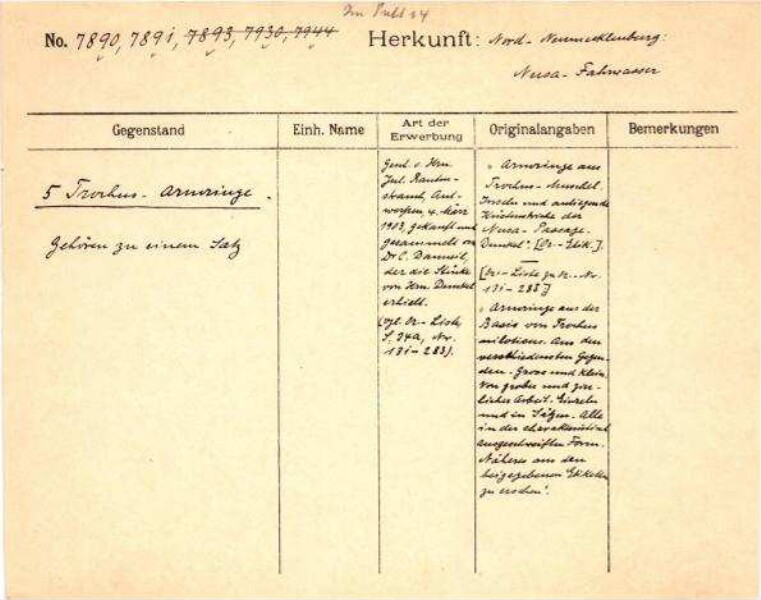 Im Pult 24
No. 7890, 7891, 7893, 7930, 7944 Herkunft: Nord-Neumecklenburg:
Nusa-Fahrwasser
Gegenstand
Einh. Name
Art der
Erwerbung
Originalangaben
Bemerkungen
5 Trochus-Armringe.
Gehören zu einem Satz
Gesch. v. Hrn.
Jul. Rauten-
strauch, Ant-
werpen, 4. März
1903, gekauft und
gesammelt von
Dr C. Danneil,
der die Stücke
von Hrn. Dunkel
erhielt.
(vgl. Or-Liste,
S. 34a, No.
131-283).
"Armringe aus
Trochus-Muschel.
Inseln und anliegende
Küstenstriche der
Nusa-Passage.
Dunkel". [Or.-Etik.].
[Or.-Liste zu Or.-No.
131-283]
"Armringe aus der
Basis von Trochus
niloticus. Aus den
verschiedensten Gegen-
den. Gross und klein.
Von grober und zier-
licher Arbeit. Einzeln
und in Sätzen. Alle
in der charakteristisch
ausgeschweiften Form.
Näheres aus den
beigegebenen Etiketten
zu ersehen".